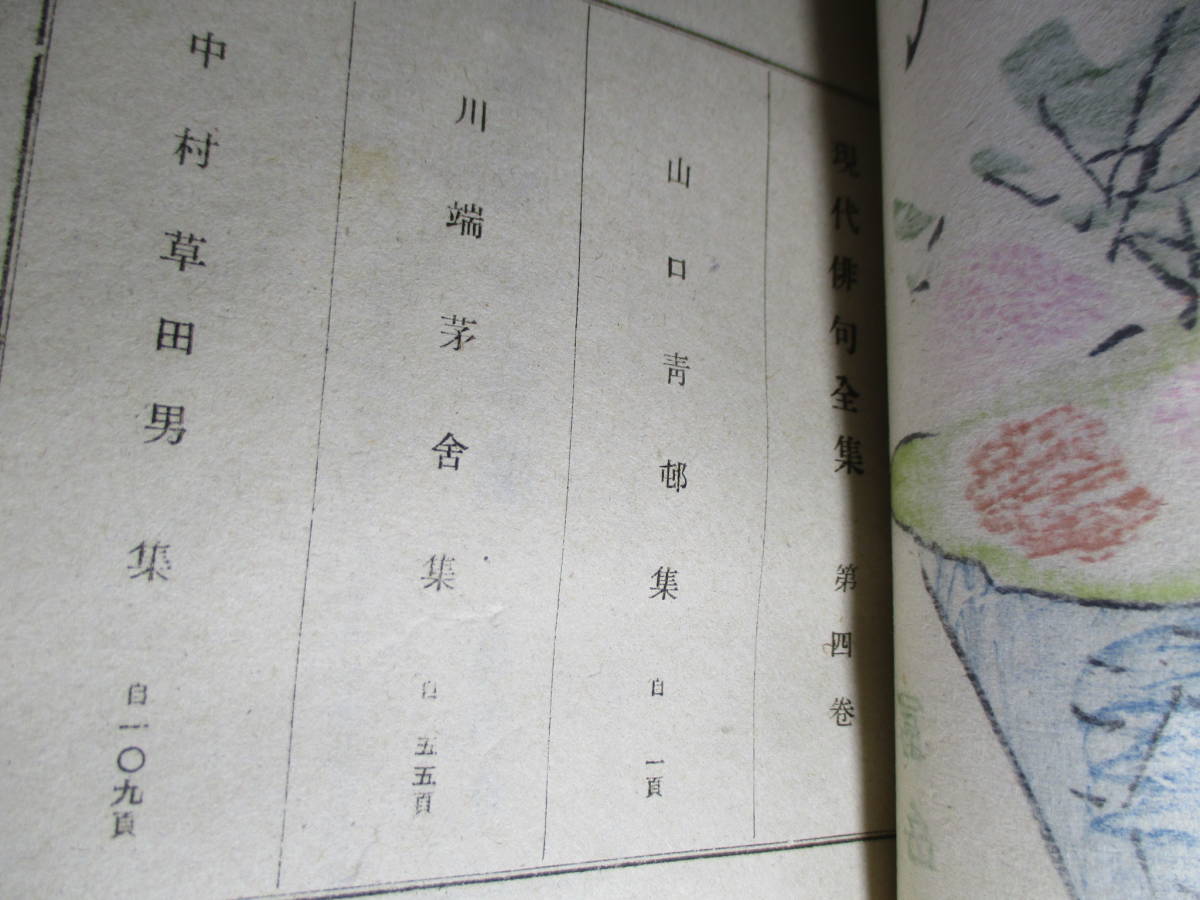 現代俳句全集 第四卷
山口靑邨集 自一頁
川端茅舍集 自五五頁
中村草田男集 自一〇九頁